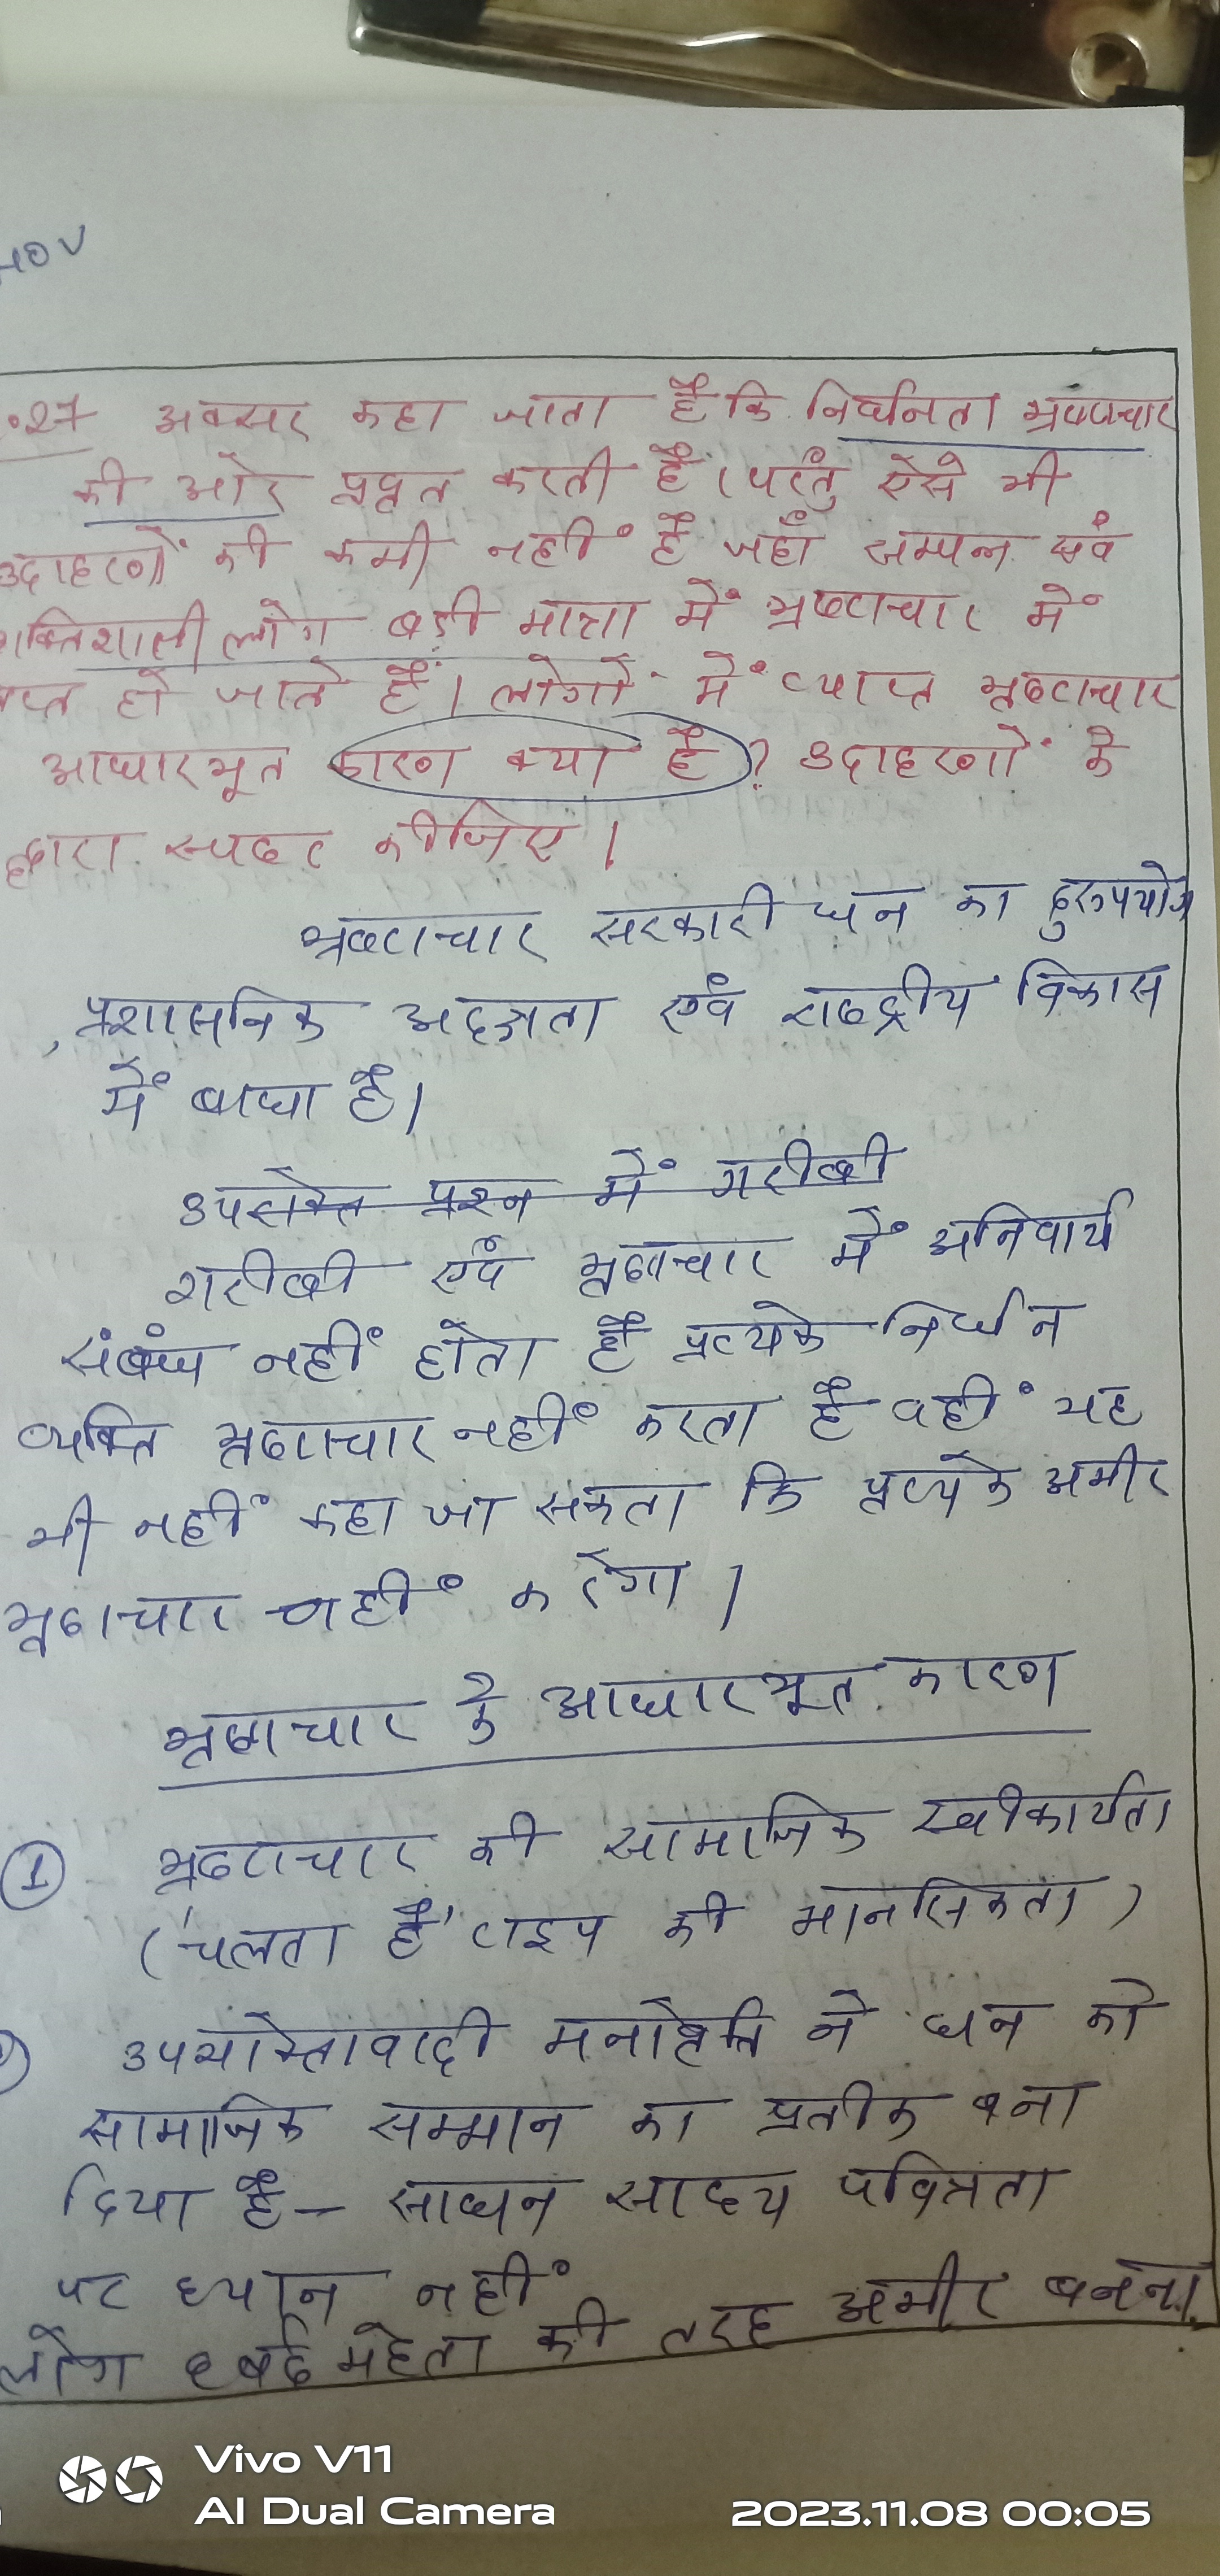 NOV
.27 अक्सर कहा जाता है कि निर्धनता भ्रष्टाचार
की ओर प्रवृत करती है। परंतु ऐसे भी
उदाहरणों की कमी नहीं है जहाँ सम्पन्न एवं
शक्तिशाली लोग बडी मात्रा में भ्रष्टाचार में
लिप्त हो जाते हैं। लोगों में व्याप्त भ्रष्टाचार
आधारभूत कारण क्या है? उदाहरणों के
द्वारा स्पष्ट कीजिए।
भ्रष्टाचार सरकारी धन का दुरुपयोग
, प्रशासनिक अदक्षता एवं राष्ट्रीय विकास
में बाधा है।
उपरोक्त प्रश्न में गरीबी
गरीबी एवं भ्रष्टाचार में अनिवार्य
संबंध नहीं होता है प्रत्येक निर्धन
व्यक्ति भ्रष्टाचार नहीं करता है वहीं यह
भी नहीं कहा जा सकता कि प्रत्येक अमीर
भ्रष्टाचार नहीं करेगा।
भ्रष्टाचार के आधारभूत कारण
① भ्रष्टाचार की सामाजिक स्वीकार्यता
('चलता है' टाइप की मानसिकता)
उपभोक्तावादी मनोवृत्ति ने धन को
सामाजिक सम्मान का प्रतीक बना
दिया है - साधन साध्य पवित्रता
पर ध्यान नहीं
लोग हर्षद मेहता की तरह अमीर बनना
Vivo V11
AI Dual Camera
2023.11.08 00:05